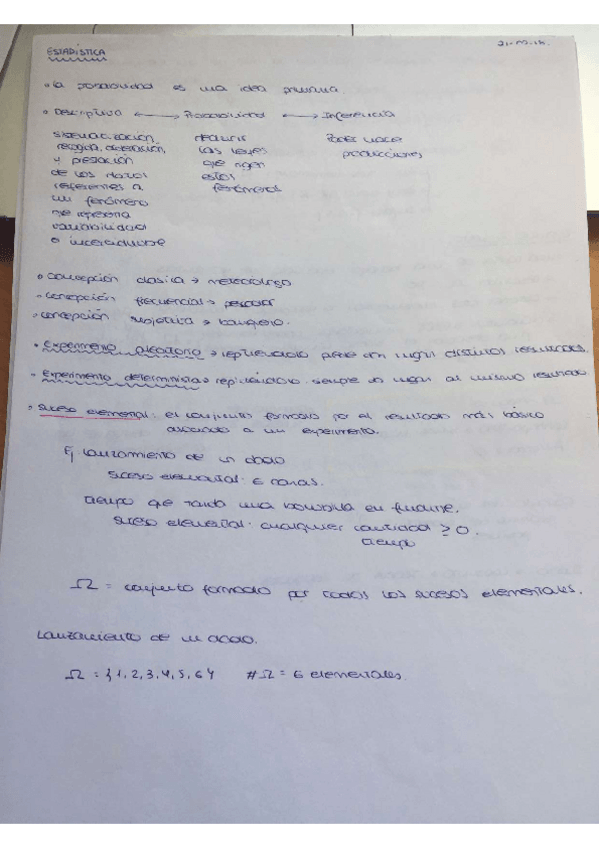 ESTADÍSTICA
• La probabilidad es una idea primitiva.
• Descriptiva ⟷ Probabilidad ⟷ Inferencia
sistematización,
recogida, ordenación,
y
de los datos
referentes a
un fenómeno
que representa
variabilidad
o incertidumbre
deducir
las leyes
que rigen
estos
fenómenos
Poder hacer
predicciones
• Concepción clásica → meteorólogo
• Concepción frecuencial → pescador
• Concepción subjetiva → banquero.
• Experimento aleatorio → repitiéndolo puede dar lugar distintos resultados.
• Experimento determinista → repitiéndolo siempre da lugar al mismo resultado
• Suceso elemental: el conjunto formado por el resultado más básico
asociado a un experimento.
Ej Lanzamiento de un dado
Suceso elemental: 6 caras.
Tiempo que tarda una bombilla en fundirse.
Suceso elemental: cualquier cantidad ≥ 0.
tiempo
Ω = conjunto formado por todos los sucesos elementales.
Lanzamiento de un dado.
Ω = {1, 2, 3, 4, 5, 6} #Ω = 6 elementales.